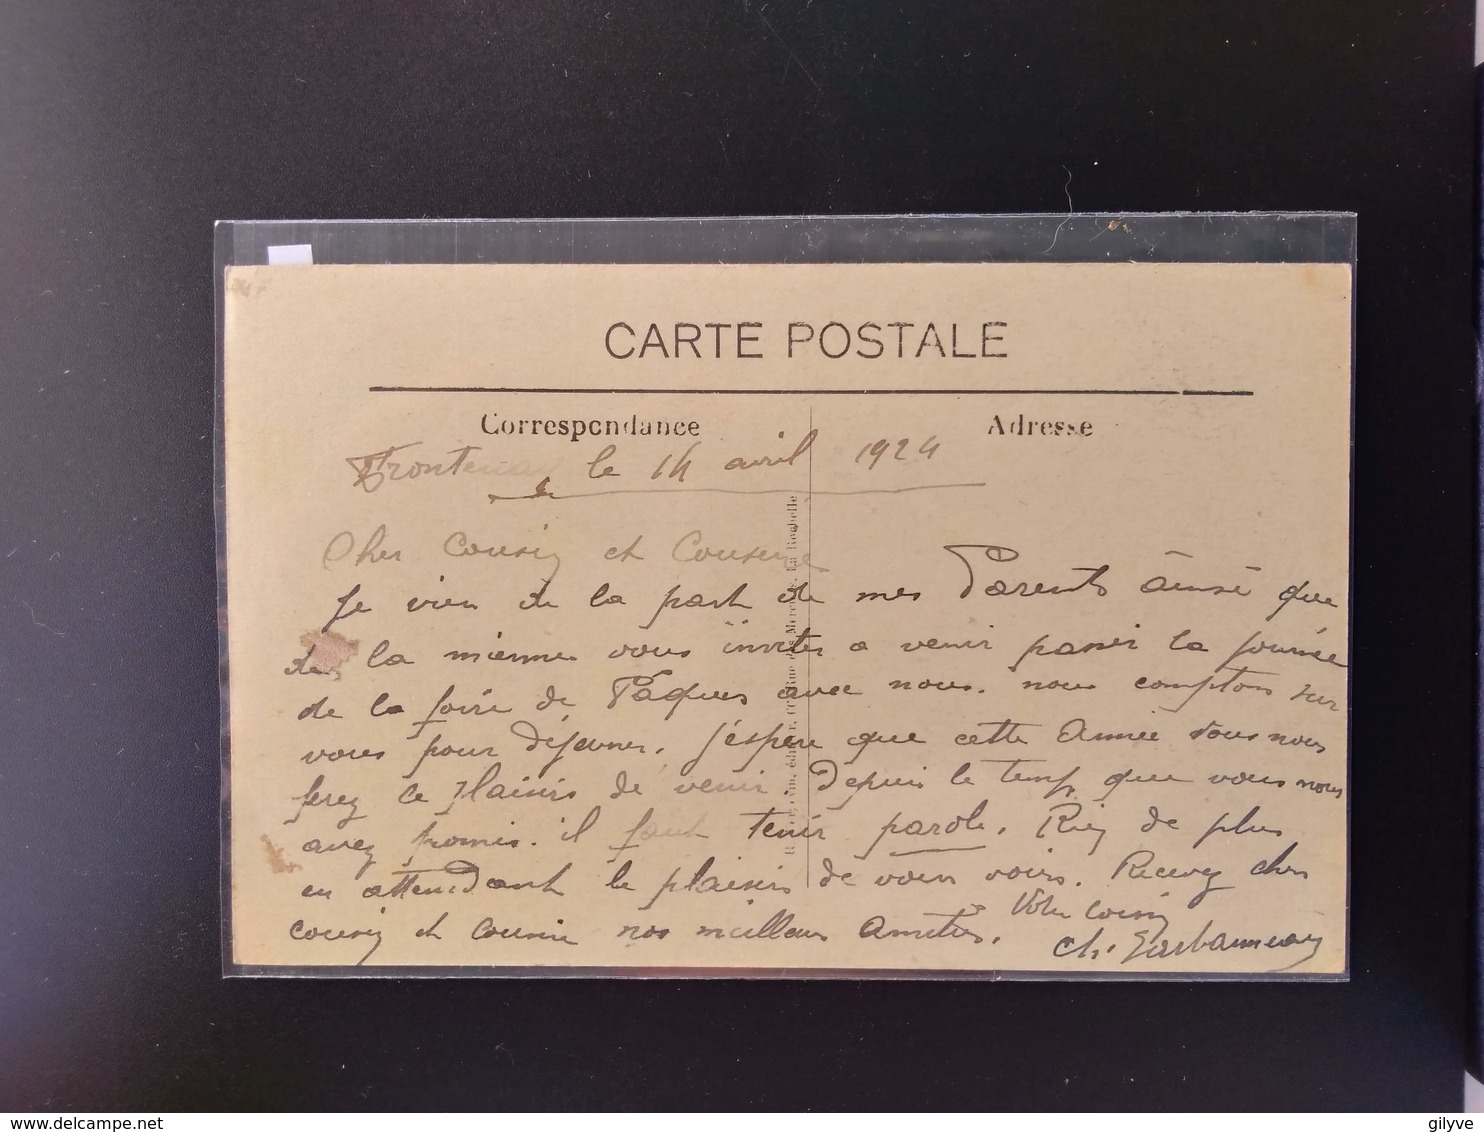 CARTE POSTALE
Correspondance
Adresse
Frontenay le 14 avril 1924
Cher Cousin et Cousine
Je vien de la part de mes Parents ainsi que
de la mienne vous inviter a venir passer la journée
de la foire de Pâques avec nous. nous comptons sur
vous pour déjeuner. J'espère que cette Année vous nous
ferez ce plaisir de venir. Depuis le temp que vous nous
avez promis. il faut tenir parole. Rien de plus
en attendant le plaisir de vous voir. Recevez cher
cousin et cousine nos meilleurs Amitiés. Votre Cousin
Ch.
delcampe.net
gilyve